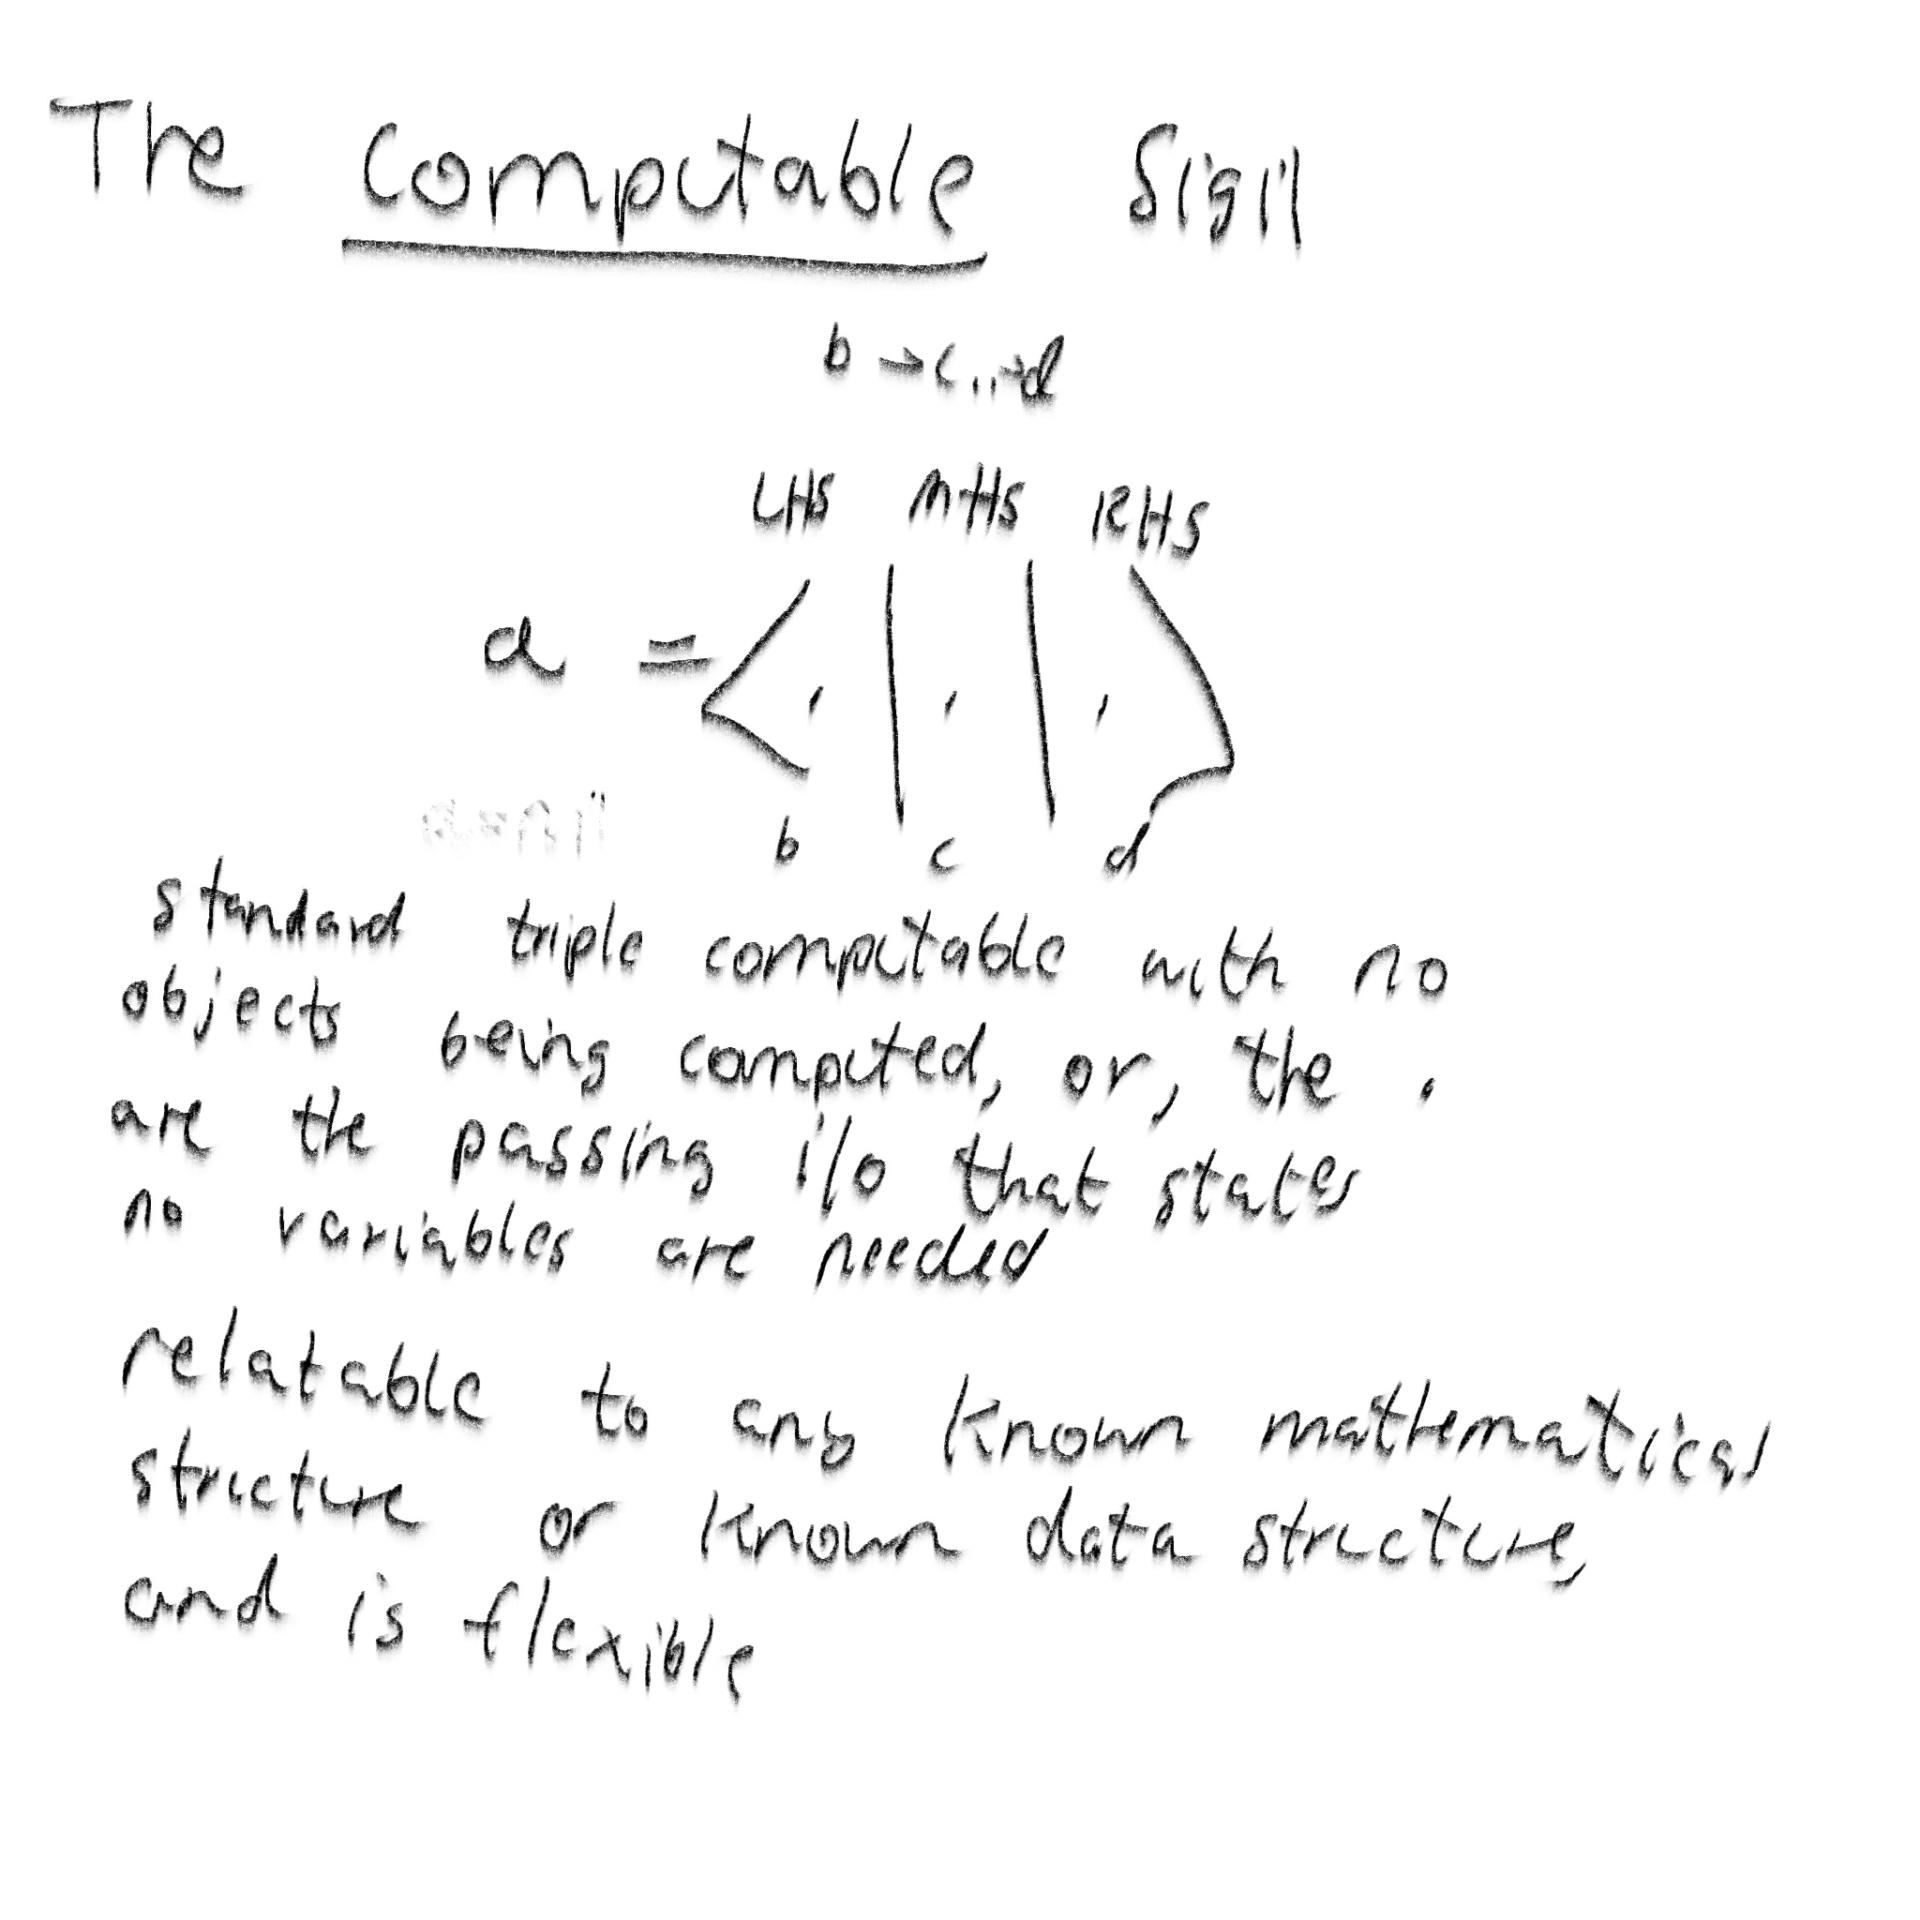 The Computable Sigil
b → c..→d
LHS MHS RHS
a = < . | . | . >
b c d
standard triple computable with no
objects being computed, or, the .
are the passing i/o that states
no variables are needed
relatable to any known mathematical
structure or known data structure,
and is flexible